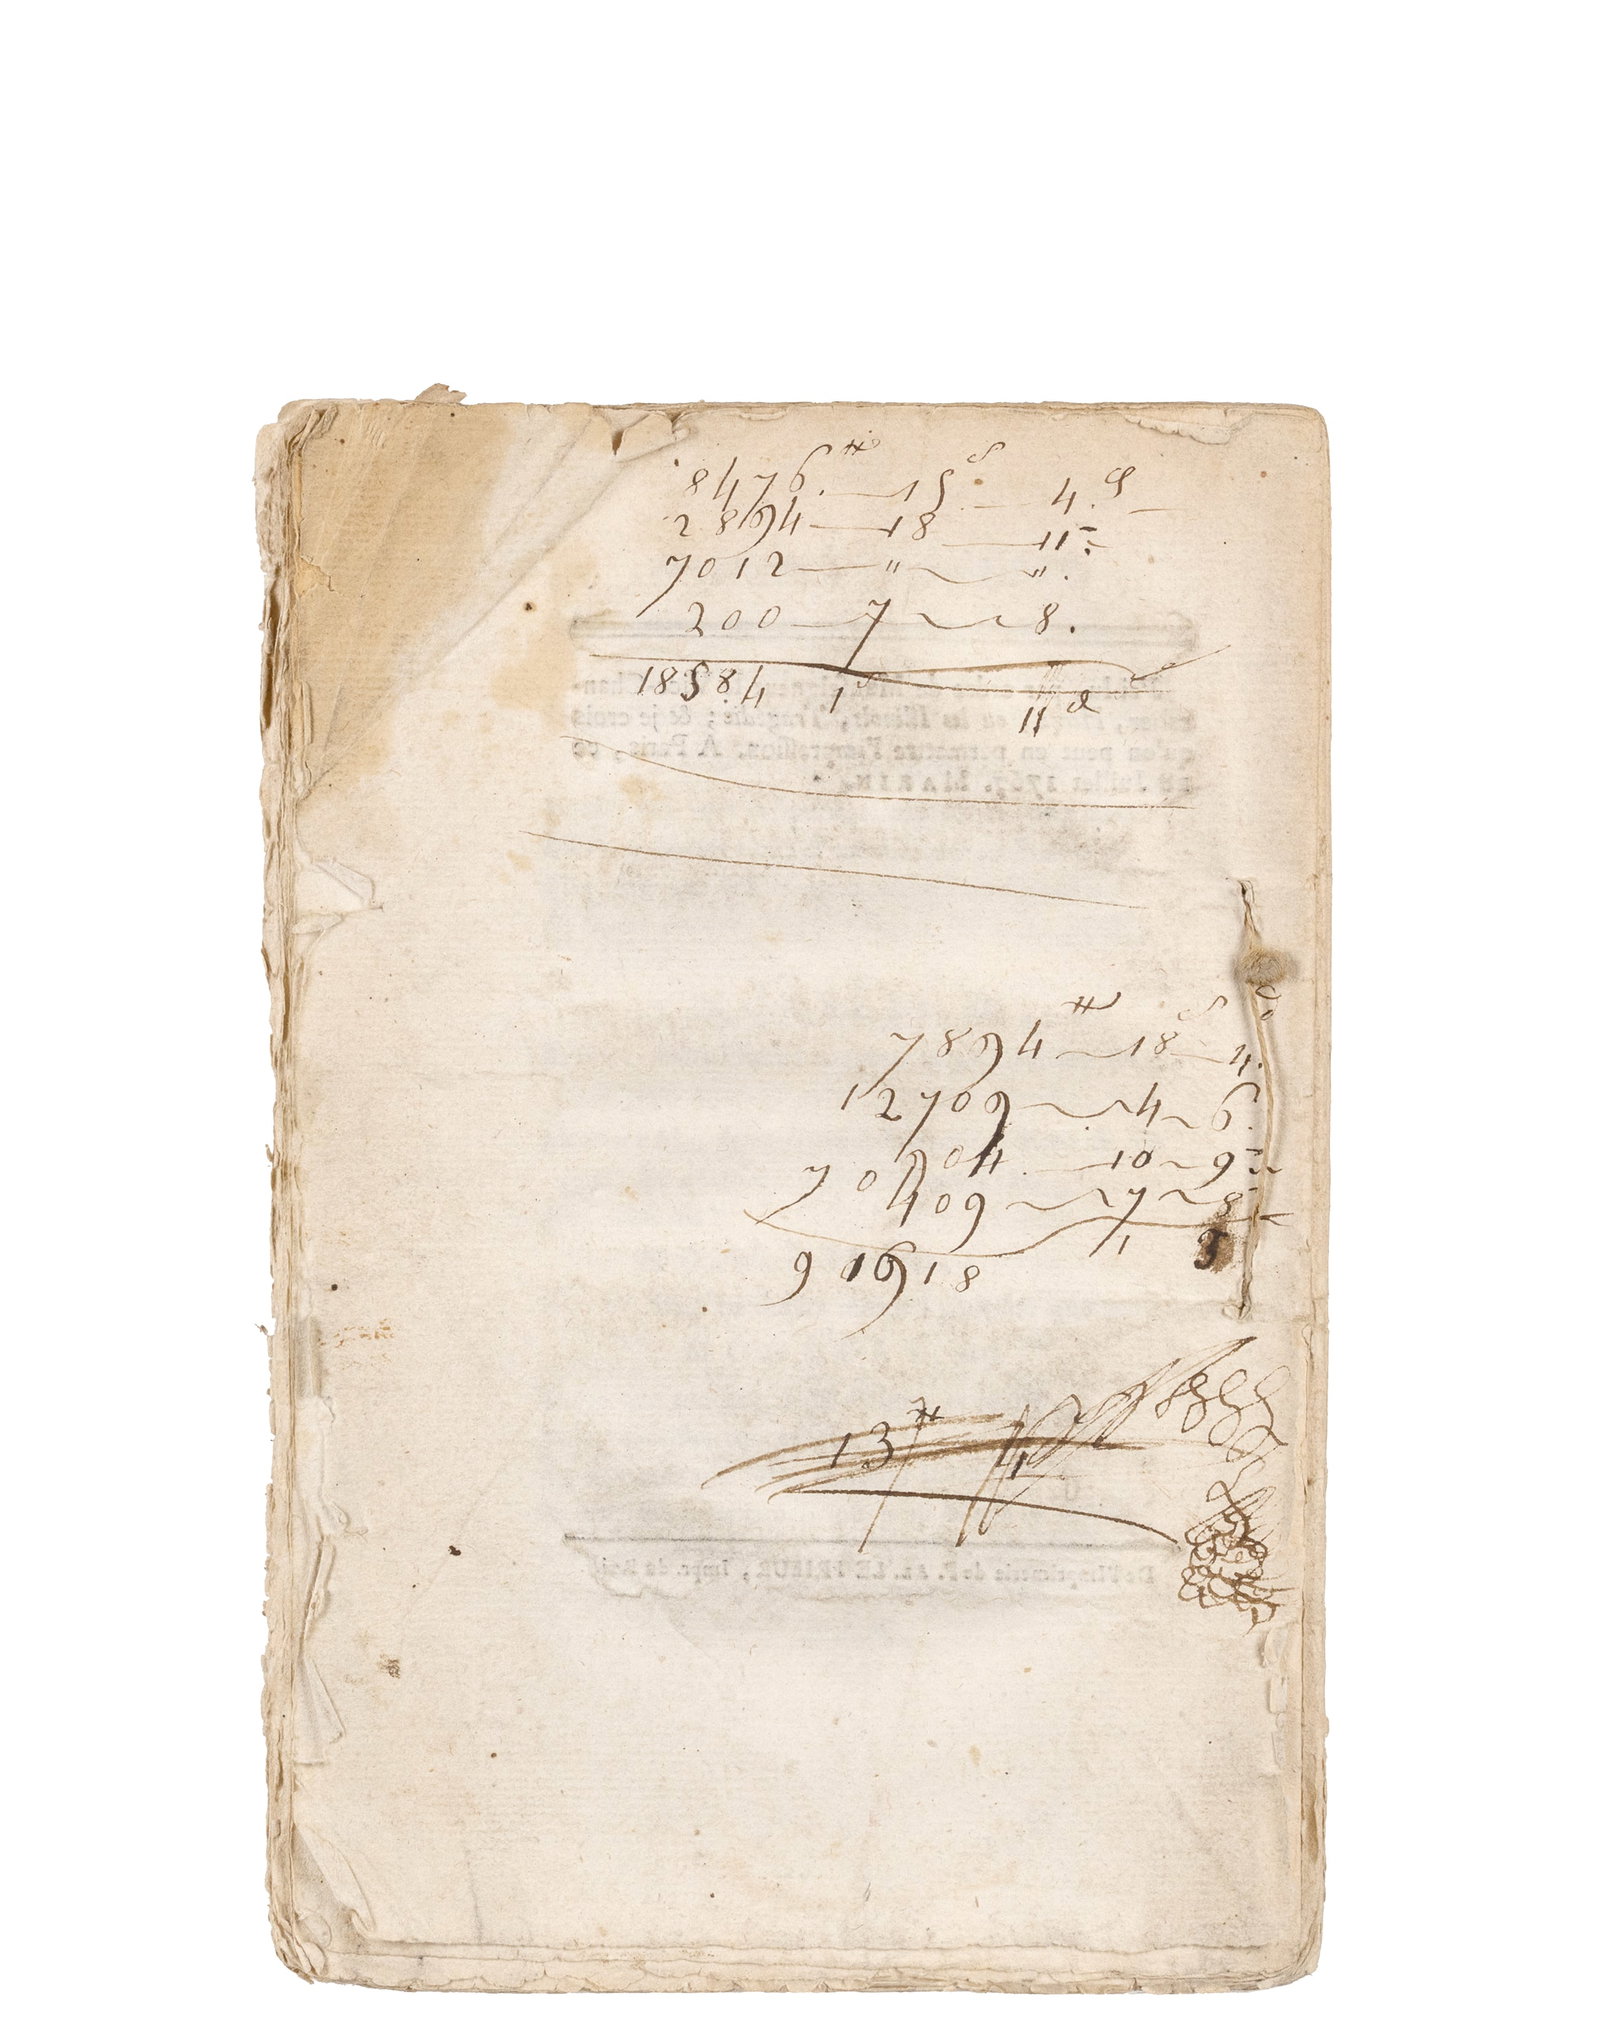 8476.₶ 15ˢ 4.ᵈ
2894 18 11
7012 " ".
200 7 8.
18584 1ˢ 11ᵈ
ou les Illinois, Tragédie; & je crois
qu'on peut en permettre l'impression. A Paris, ce
Juillet 1767. MARIN.
7894₶ 18ˢ 4.ᵈ
12709 4 6.
70904. 10 9
409 7 8
91918 1 3
13₶ 4
De l'Imprimerie de P. AL. LE PRIEUR, Impr. du Roi.